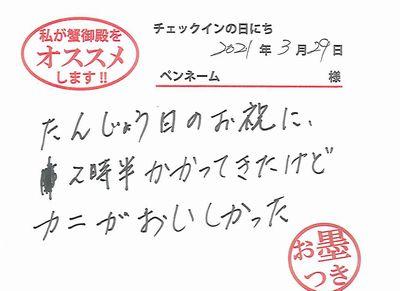 私が蟹御殿を
オススメ
します!!
チェックインの日にち
2021年3月29日
ペンネーム 様
たんじょう日のお祝に、
2時半かかってきたけど
カニがおいしかった
お墨
つき